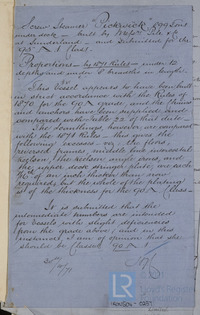 Screw Steamer "Pickwick" 899 Tons
under deck - built by Messrs Pile & Co
at Sunderland - and submitted for the
90 A 1 Class.
Proportions by 1870 Rules - under to
depths and under breadths in length
This vessel appears to have been built
in strict accordance with the Rules of
1870 for the 90 A grade, and the chains
and anchors have been supplied
in accordance with Table 22 of that date.
The scantlings however as compared
with the 1871 Rules - this gives the
following excesses, viz: the floors,
reversed frames, middle line and vertical
keelson, the keelson angle irons, and
the upper deck stringer plate, are each
1/16th of an inch thicker than now
required but the whole of the plating
is of the thickness for the 90 A Class -
It is submitted that the
intermediate numbers are intended
for vessels with slight deficiencies
from the grade above; and in this
instance I am of opinion that she
should be classed 90 A 1